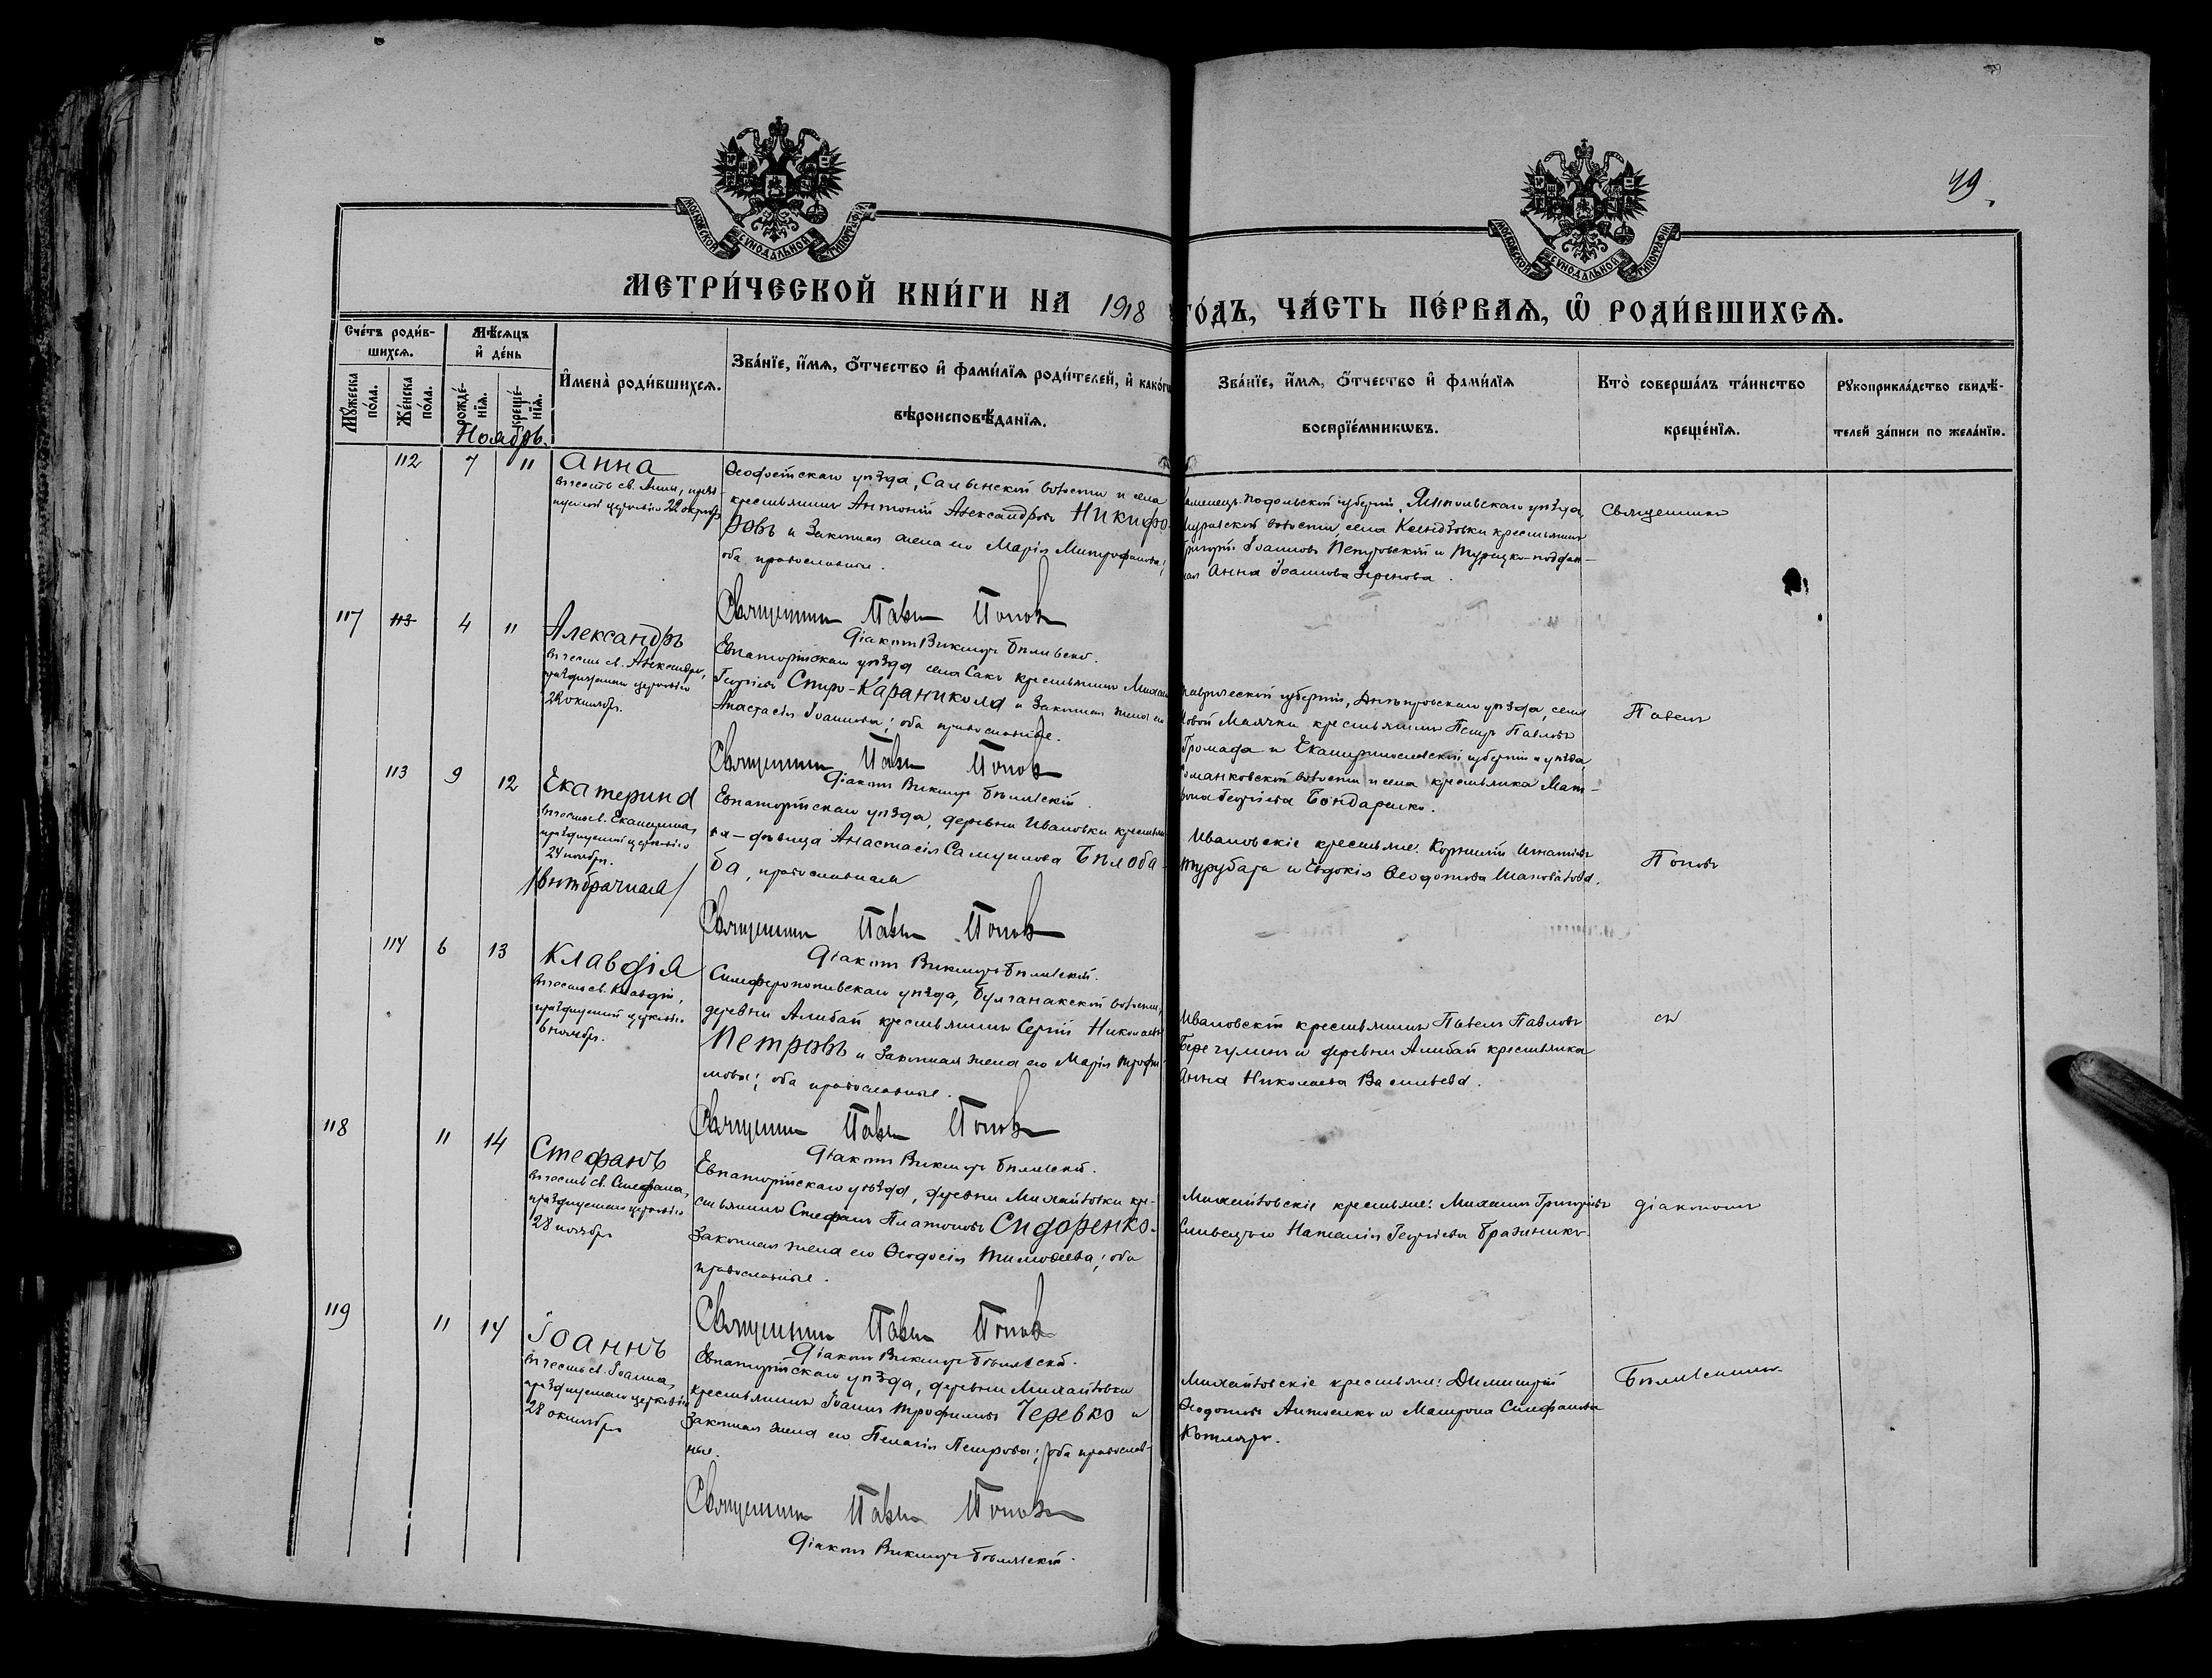 49.
МОСКОВСКОЙ СѴНОДАЛЬНОЙ ТИПОГРАФІИ.
МОСКОВСКОЙ СѴНОДАЛЬНОЙ ТИПОГРАФІИ.
МЕТРИ́ЧЕСКОЙ КНИ́ГИ НА 1918 ГО́ДЪ, ЧА́СТЬ ПЕ́РВАѦ, Ѡ҆ РОДИ́ВШИХСѦ.
Сче́тъ роди́в-
шихсѧ.
Мѣ́сѧцъ
и҆ де́нь
Мꙋ́жеска
по́ла.
Же́нска
по́ла.
рожде́-
нїѧ.
креще́-
нїѧ.
И҆мена̀ роди́вшихсѧ.
Зва́нїе, и҆́мѧ, ѻ҆́тчество и҆ фамі́лїѧ роди́телей, и҆ како́гѡ
вѣроисповѣ́данїѧ.
Зва́нїе, и҆́мѧ, ѻ҆́тчество и҆ фамі́лїѧ
воспрїе́мникѡвъ.
Кто̀ соверша́лъ та́инство
креще́нїѧ.
Рꙋкоприкла́дство свидѣ́-
телей за́писи по жела́нїю.
Ноябрь.
112 7 11 Анна
въ честь св. Анны, празд-
нуемой церковію 22 октябр.
Ѳеодосійскаго уѣзда, Салынской волости и села
крестьянинъ Антоній Александровъ Никифо-
ровъ и законная жена его Марія Митрофанова;
оба православные.
Священникъ Павелъ Поповъ
Діаконъ Викторъ Бѣльскій.
Каменецъ-Подольской губерніи, Ямпольскаго уѣзда,
волости, села крестьянинъ
Григорій Іоанновъ и турецко-поддан-
ная Анна Іоаннова
Священникъ
117 113 4 11 Александръ
въ честь св. Александра,
празднуемаго церковію
22 октября.
Евпаторійскаго уѣзда села Саки крестьянинъ Михаилъ
Георгіевъ Спиро-Караникола и законная жена его
Анастасія Іоаннова; оба православные.
Священникъ Павелъ Поповъ
Діаконъ Викторъ Бѣльскій.
Таврической губерніи, Днѣпровскаго уѣзда, села
Новой Маячки крестьянинъ Петръ Павловъ
Громада и Екатеринославской губерніи и уѣзда
Романковской волости и села крестьянка Мат-
рона Георгіева Бондаренко.
Павелъ
113 9 12 Екатерина
въ честь св. Екатерины,
празднуемой церковію
24 ноября.
/внѣбрачная/
Евпаторійскаго уѣзда, деревни Ивановки крестьян-
ка-дѣвица Анастасія Самуилова Бѣлоба-
ба, православная
Священникъ Павелъ Поповъ
Діаконъ Викторъ Бѣльскій.
Ивановскіе крестьяне: Корнилій Игнатіевъ
Турубара и Евдокія Ѳеодотова Шаповалова.
Поповъ
114 6 13 Клавдія
въ честь св. Клавдіи,
празднуемой церковію
6 ноября.
Симферопольскаго уѣзда, Булганакской волости,
деревни Алибай крестьянинъ Сергій Николаевъ
Петровъ и законная жена его Марія Трофи-
мова; оба православные.
Священникъ Павелъ Поповъ
Діаконъ Викторъ Бѣльскій.
Ивановскій крестьянинъ Павелъ Павловъ
и деревни Алибай крестьянка
Анна Николаева Васильева.
съ
118 11 14 Стефанъ
въ честь св. Стефана,
празднуемаго церковію
28 ноября
Евпаторійскаго уѣзда, деревни Михайловки кре-
стьянинъ Стефанъ Платоновъ Сидоренко.
Законная жена его Ѳеодосія Тимоѳеева; оба
православные.
Священникъ Павелъ Поповъ
Діаконъ Викторъ Бѣльскій.
Михайловскіе крестьяне: Михаилъ Григорьевъ
и Наталія Георгіева
діакономъ
119 11 14 Іоаннъ
въ честь св. Іоанна,
празднуемаго церковію
28 октября
Евпаторійскаго уѣзда, деревни Михайловки
крестьянинъ Іоаннъ Трофимовъ Черевко и
законная жена его Пелагія Петрова; оба православ-
ные.
Священникъ Павелъ Поповъ
Діаконъ Викторъ Бѣльскій.
Михайловскіе крестьяне: Димитрій
Ѳеодотовъ Антоненко и Матрона Стефанова
Котляръ.
Бѣльскимъ